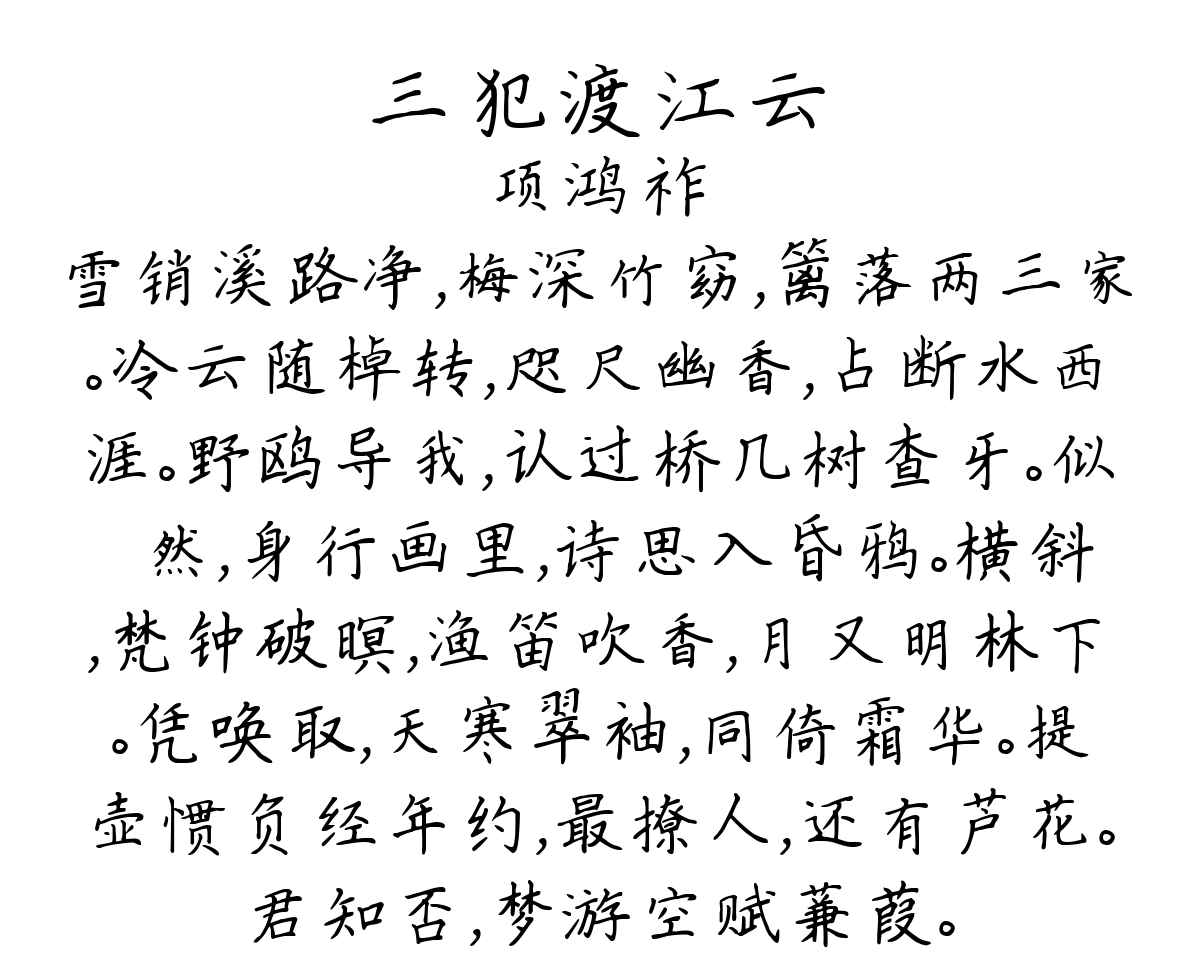 三犯渡江云
项鸿祚
雪销溪路净,梅深竹窈,篱落两三家
。冷云随棹转,咫尺幽香,占断水西
涯。野鸥导我,认过桥几树查牙。似
然,身行画里,诗思入昏鸦。横斜
,梵钟破暝,渔笛吹香,月又明林下
。凭唤取,天寒翠袖,同倚霜华。提
壶惯负经年约,最撩人,还有芦花。
君知否,梦游空赋蒹葭。